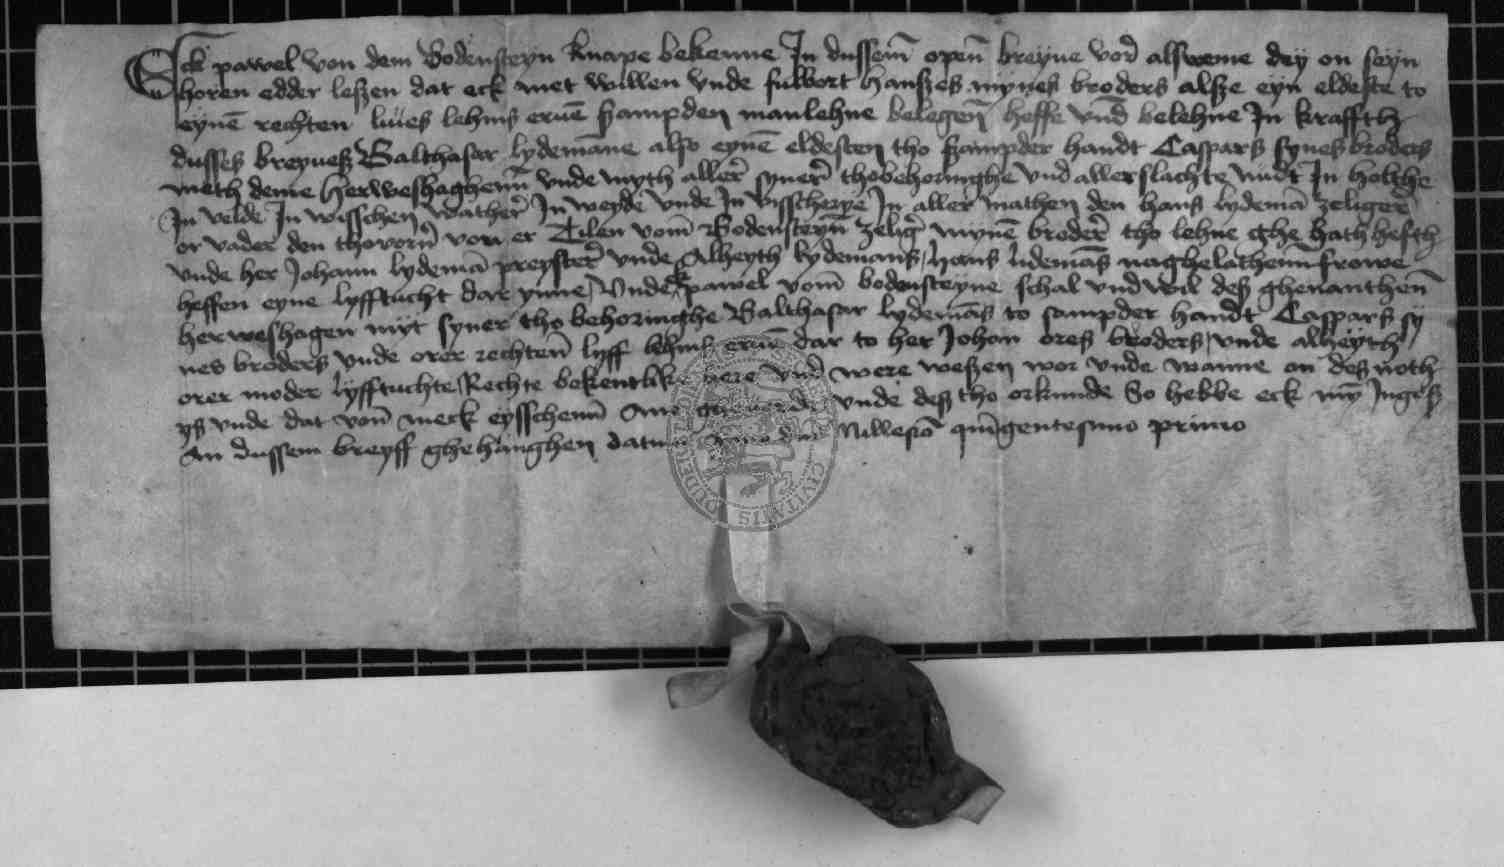 Eck pawel von dem Bodensteyn knape bekenne In dussem̄ open̄ breyue vor̄ alsweme dey on seyn
horen edder leszen dat eck met willen vnde fulbort Hanszes mynes broders alsze eyn eldeste to
eynē rechten lyues lehns eruē szampden manlehne belegen̄ heffe vnd̄ belehne In Kraffth
dusses breyuesz Balthasar lydemāne also eynē eldesten tho szampder handt Caspars synes broders
meth deme Herweshaghenn̄ vnde myth aller̄ syner̄ thobehoringhe vnd allerslachte nudt In holthe
In velde In wisschen wather̄ In weyde vnde In visscherye In aller mathen den hans lydemā zeliger̄
or vader den thovorn̄ von er Tilen vom̄ Bodensteyn̄ zeliḡ mynē broder̄ tho lehne ghe hath hefth
vnde her Johann lydemā preyster̄ vnde Alheyth lydemans hans lidemās naghelathenn̄ frowe
heffen eyne lyfftucht dar ynne Vnde ek pawel vom̄ bodensteyne schal vnd wil desz ghenanthen̄
herweshagen myt syner tho behoringhe Balthasar lydemās to sampder handt Caspars sy
nes broders vnde orer rechten̄ lyff lehns eruē dar to her Johan ores broders vnde alheyth
orer moder lyfftuchte Rechte bekentlike here vnd̄ were weszen wor vnde wanne on des noth
ys vnde dat von̄ meck eysschenn̄ Ane geuerde vnde desz tho orkunde So hebbe eck my̅ Ingesz
An dussem breyff ghehanghen datum Millesīo qui̅gentesimo primo
CIVITATIS DUDER